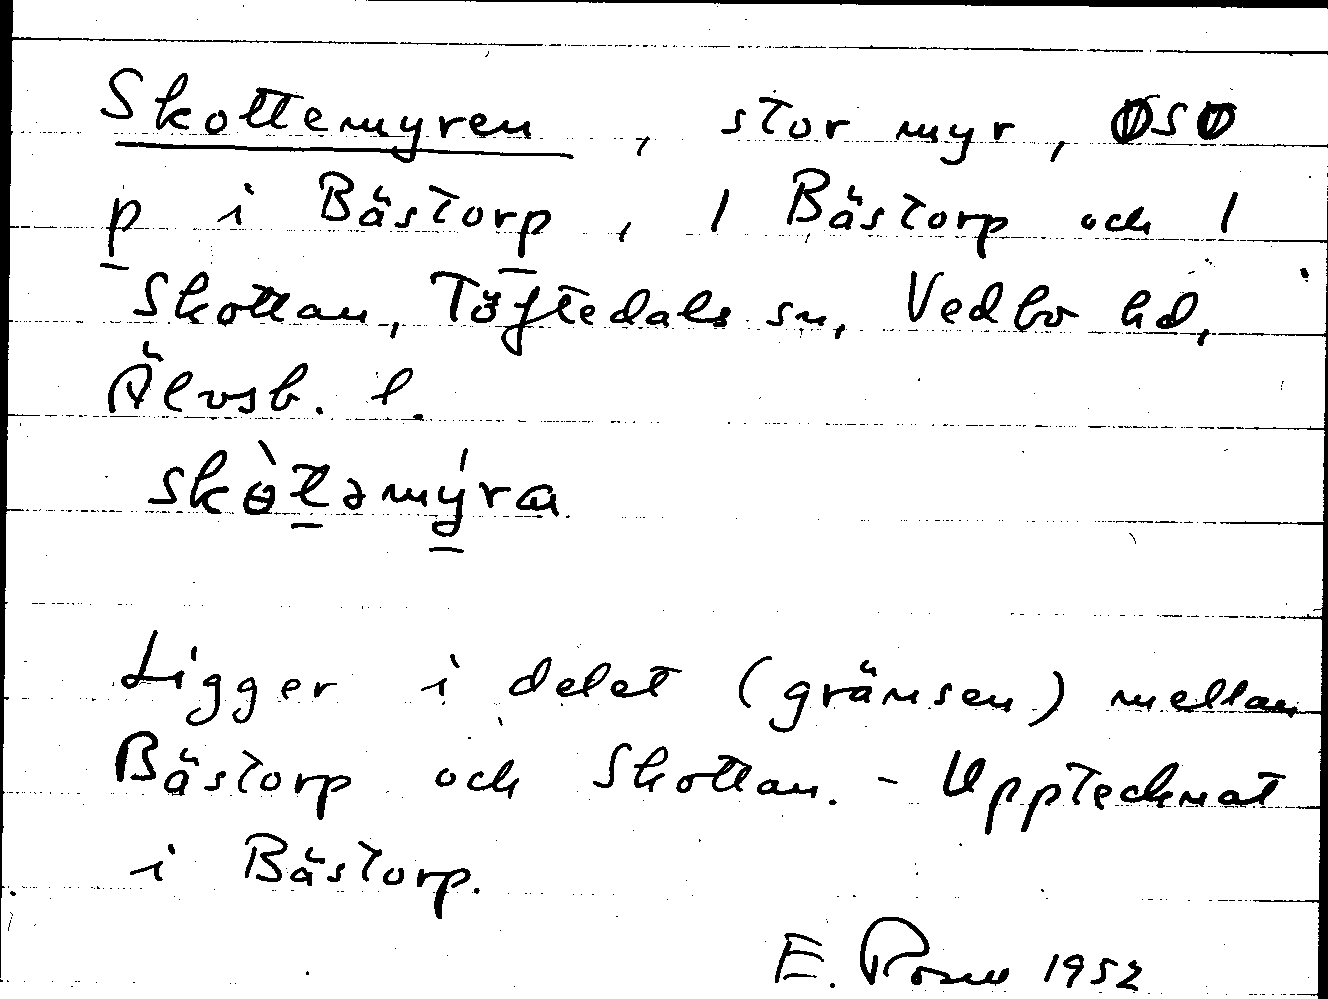 Skottemyren, stor myr, OSO
p i Bästorp, 1 Bästorp och 1
Skottan, Töftedals sn, Vedbo hd,
Älvsb. l.
skɵ̀təmýra
Ligger i delet (gränsen) mellan
Bästorp och Skottan. - Upptecknat
i Bästorp.
E. 1952